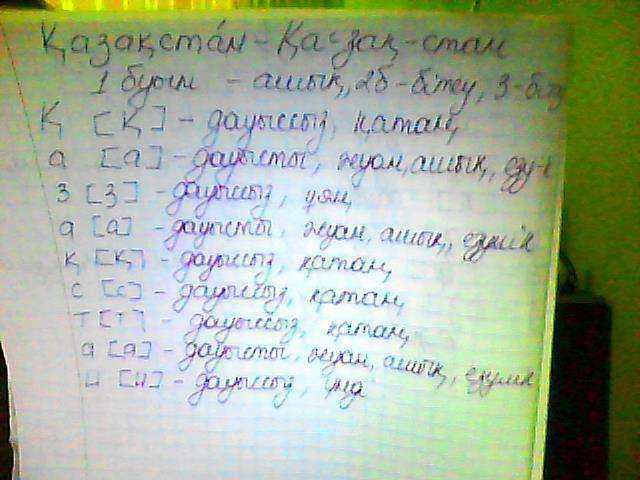 Қазақста́н - Қа-зақ-стан
1 буын - ашық, 2б - бітеу, 3 - біт
Қ [Қ] - дауыссыз, қатаң,
а [а] - дауысты, жуан, ашық, езу-к
З [З] - дауыссыз, ұяң
а [а] - дауысты, жуан, ашық, езулік
қ [қ] - дауыссыз, қатаң,
с [с] - дауыссыз, қатаң,
т [т] - дауыссыз, қатаң,
а [а] - дауысты, жуан, ашық, езулік
н [н] - дауыссыз, үнді